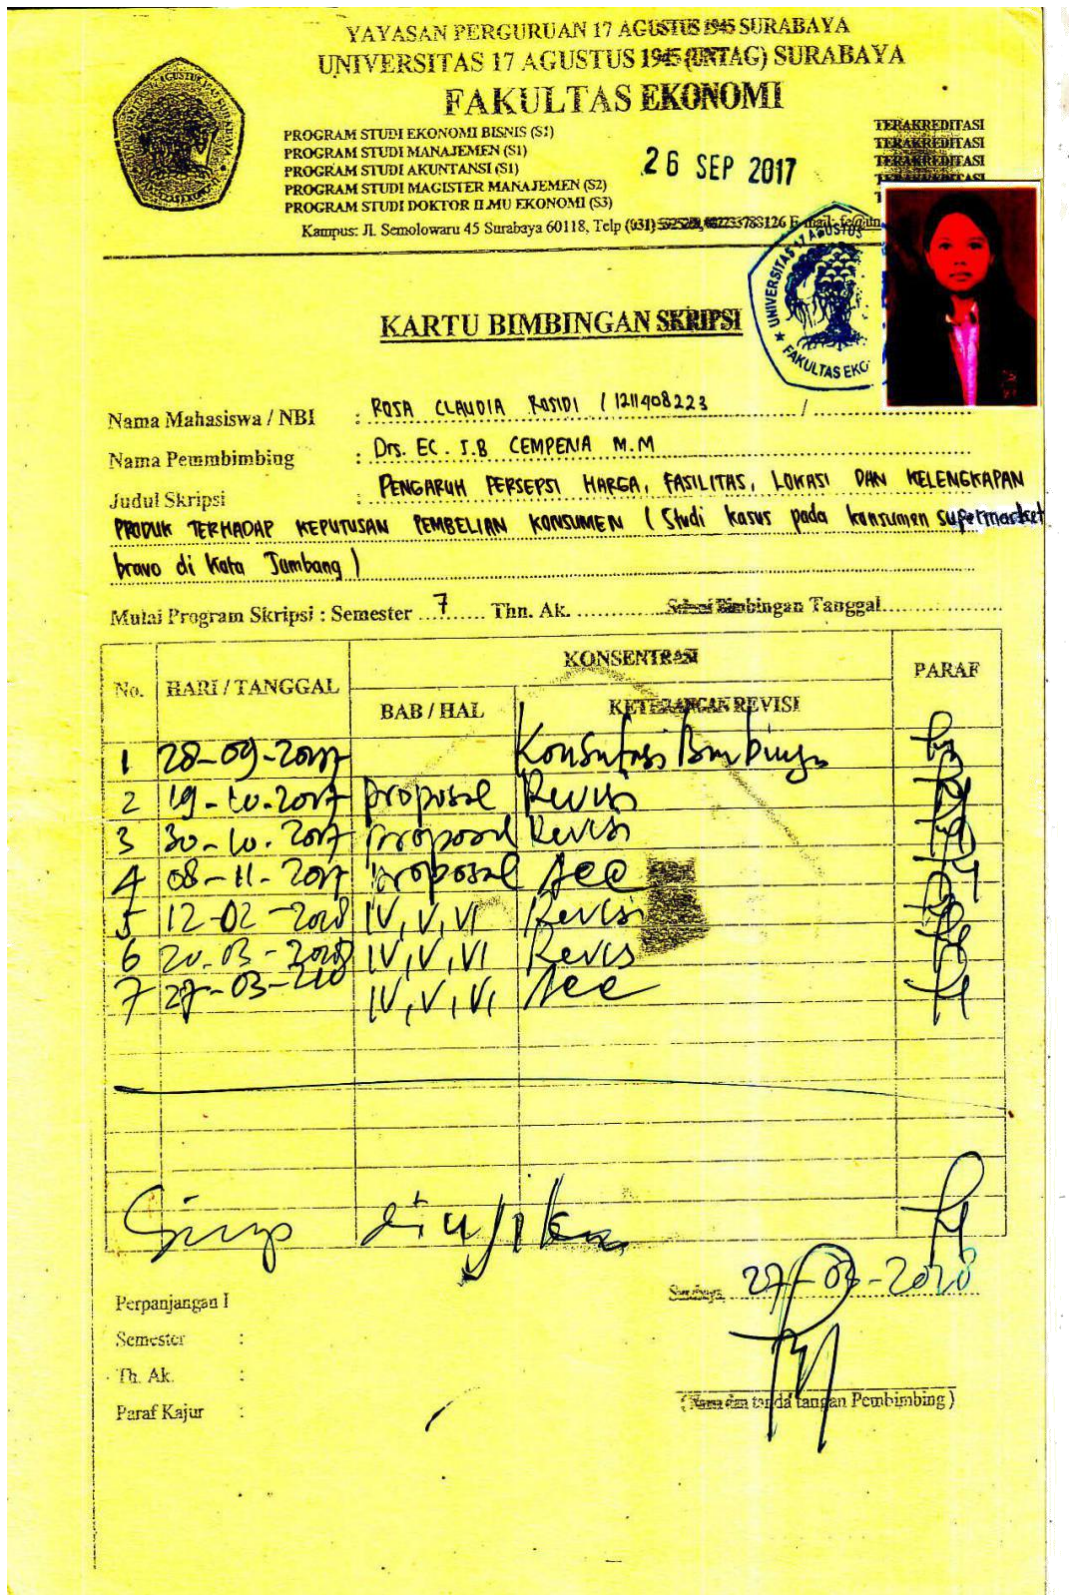 YAYASAN PERGURUAN 17 AGUSTUS 1945 SURABAYA
UNIVERSITAS 17 AGUSTUS 1945 (UNTAG) SURABAYA
FAKULTAS EKONOMI
PROGRAM STUDI EKONOMI BISNIS (S1) TERAKREDITASI
PROGRAM STUDI MANAJEMEN (S1) TERAKREDITASI
PROGRAM STUDI AKUNTANSI (S1) TERAKREDITASI
PROGRAM STUDI MAGISTER MANAJEMEN (S2) TERAKREDITASI
PROGRAM STUDI DOKTOR ILMU EKONOMI (S3)
26 SEP 2017
Kampus: Jl. Semolowaru 45 Surabaya 60118, Telp (031)
UNIVERSITAS 17 AGUSTUS
FAKULTAS EKO
KARTU BIMBINGAN SKRIPSI
Nama Mahasiswa / NBI : ROSA CLAUDIA ROSIDI / 1211408223 /
Nama Pemmbimbing : Drs. EC. I.B CEMPENA M.M
Judul Skripsi : PENGARUH PERSEPSI HARGA, FASILITAS, LOKASI DAN KELENGKAPAN
PRODUK TERHADAP KEPUTUSAN PEMBELIAN KONSUMEN ( Studi kasus pada konsumen supermarket
bravo di Kota Jombang )
Mulai Program Skripsi : Semester 7 Thn. Ak. Bimbingan Tanggal
No. HARI / TANGGAL KONSENTRASI PARAF
BAB / HAL KETERANGAN REVISI
1 28-09-2017 Konsultasi Bimbingan
2 19-10-2017 proposal Revisi
3 30-10-2017 proposal Revisi
4 08-11-2017 proposal Acc
5 12-02-2018 IV, V, VI Revisi
6 20-03-2018 IV, V, VI Revisi
7 27-03-2018 IV, V, VI Acc
Siap diujikan
Surabaya, 27-03-2018
Perpanjangan I
Semester :
Th. Ak. :
Paraf Kajur :
( Nama dan tanda tangan Pembimbing )